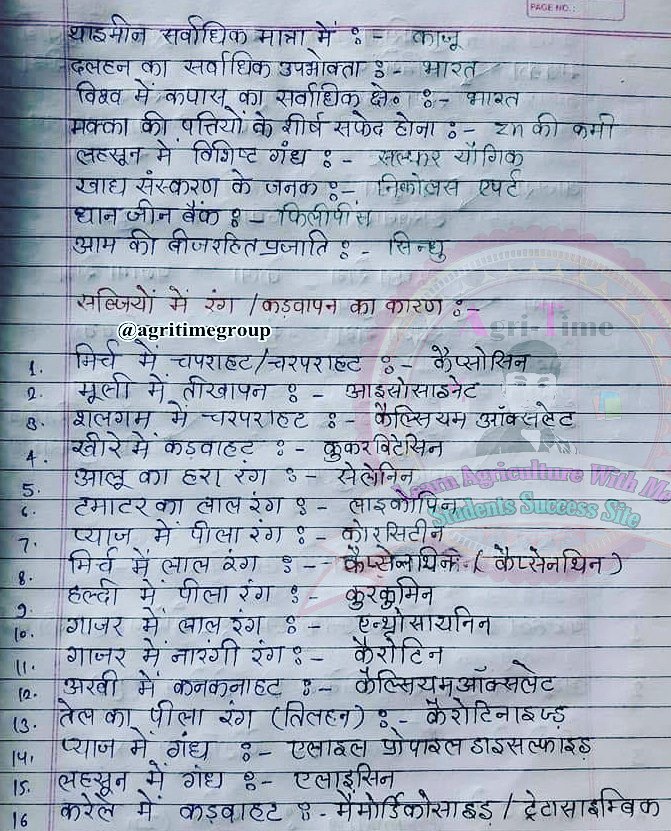 PAGE NO.:
थाइमीन सर्वाधिक मात्रा में :- काजू
दलहन का सर्वाधिक उपभोक्ता :- भारत
विश्व में कपास का सर्वाधिक क्षे० :- भारत
मक्का की पत्तियों के शीर्ष सफेद होना :- zn की कमी
लहसून में विशिष्ट गंध :- सल्फर यौगिक
खाद्य संस्करण के जनक :- निकोलस एपर्ट
धान जीन बैंक :- फिलीपींस
आम की बीजरहित प्रजाति :- सिन्धु
सब्जियों में रंग / कड़वापन का कारण :-
@agritimegroup
Agri-Time
1. मिर्च में चपराहट/चरपराहट :- कैप्सोसिन
2. मूली में तीखापन :- आइसोसाइनेट
3. शलगम में चरपराहट :- कैल्सियम ऑक्सलेट
4. खीरे में कड़वाहट :- कुकरविटेसिन
5. आलू का हरा रंग :- सेलेनिन
6. टमाटर का लाल रंग :- लाइकोपिन
Learn Agriculture With Me
Students Success Site
7. प्याज में पीला रंग :- कोरसिटीन
8. मिर्च में लाल रंग :-- कैप्सेनथिन ( कैप्सेनथिन )
9. हल्दी में पीला रंग :- कुरकुमिन
10. गाजर में लाल रंग :- एन्थोसायनिन
11. गाजर में नारंगी रंग :- कैरोटिन
12. अरवी में कनकनाहट :- कैल्सियम ऑक्सलेट
13. तेल का पीला रंग (तिलहन) :- कैरोटिनाइज्ड
14. प्याज में गंध :- एलाइल प्रोपाइल डाइसल्फाइड
15. लहसून में गंध :- एलाइसिन
16 करेले में कड़वाहट :- मैमोर्डिकोसाइड / ट्रेटासाइम्बिक